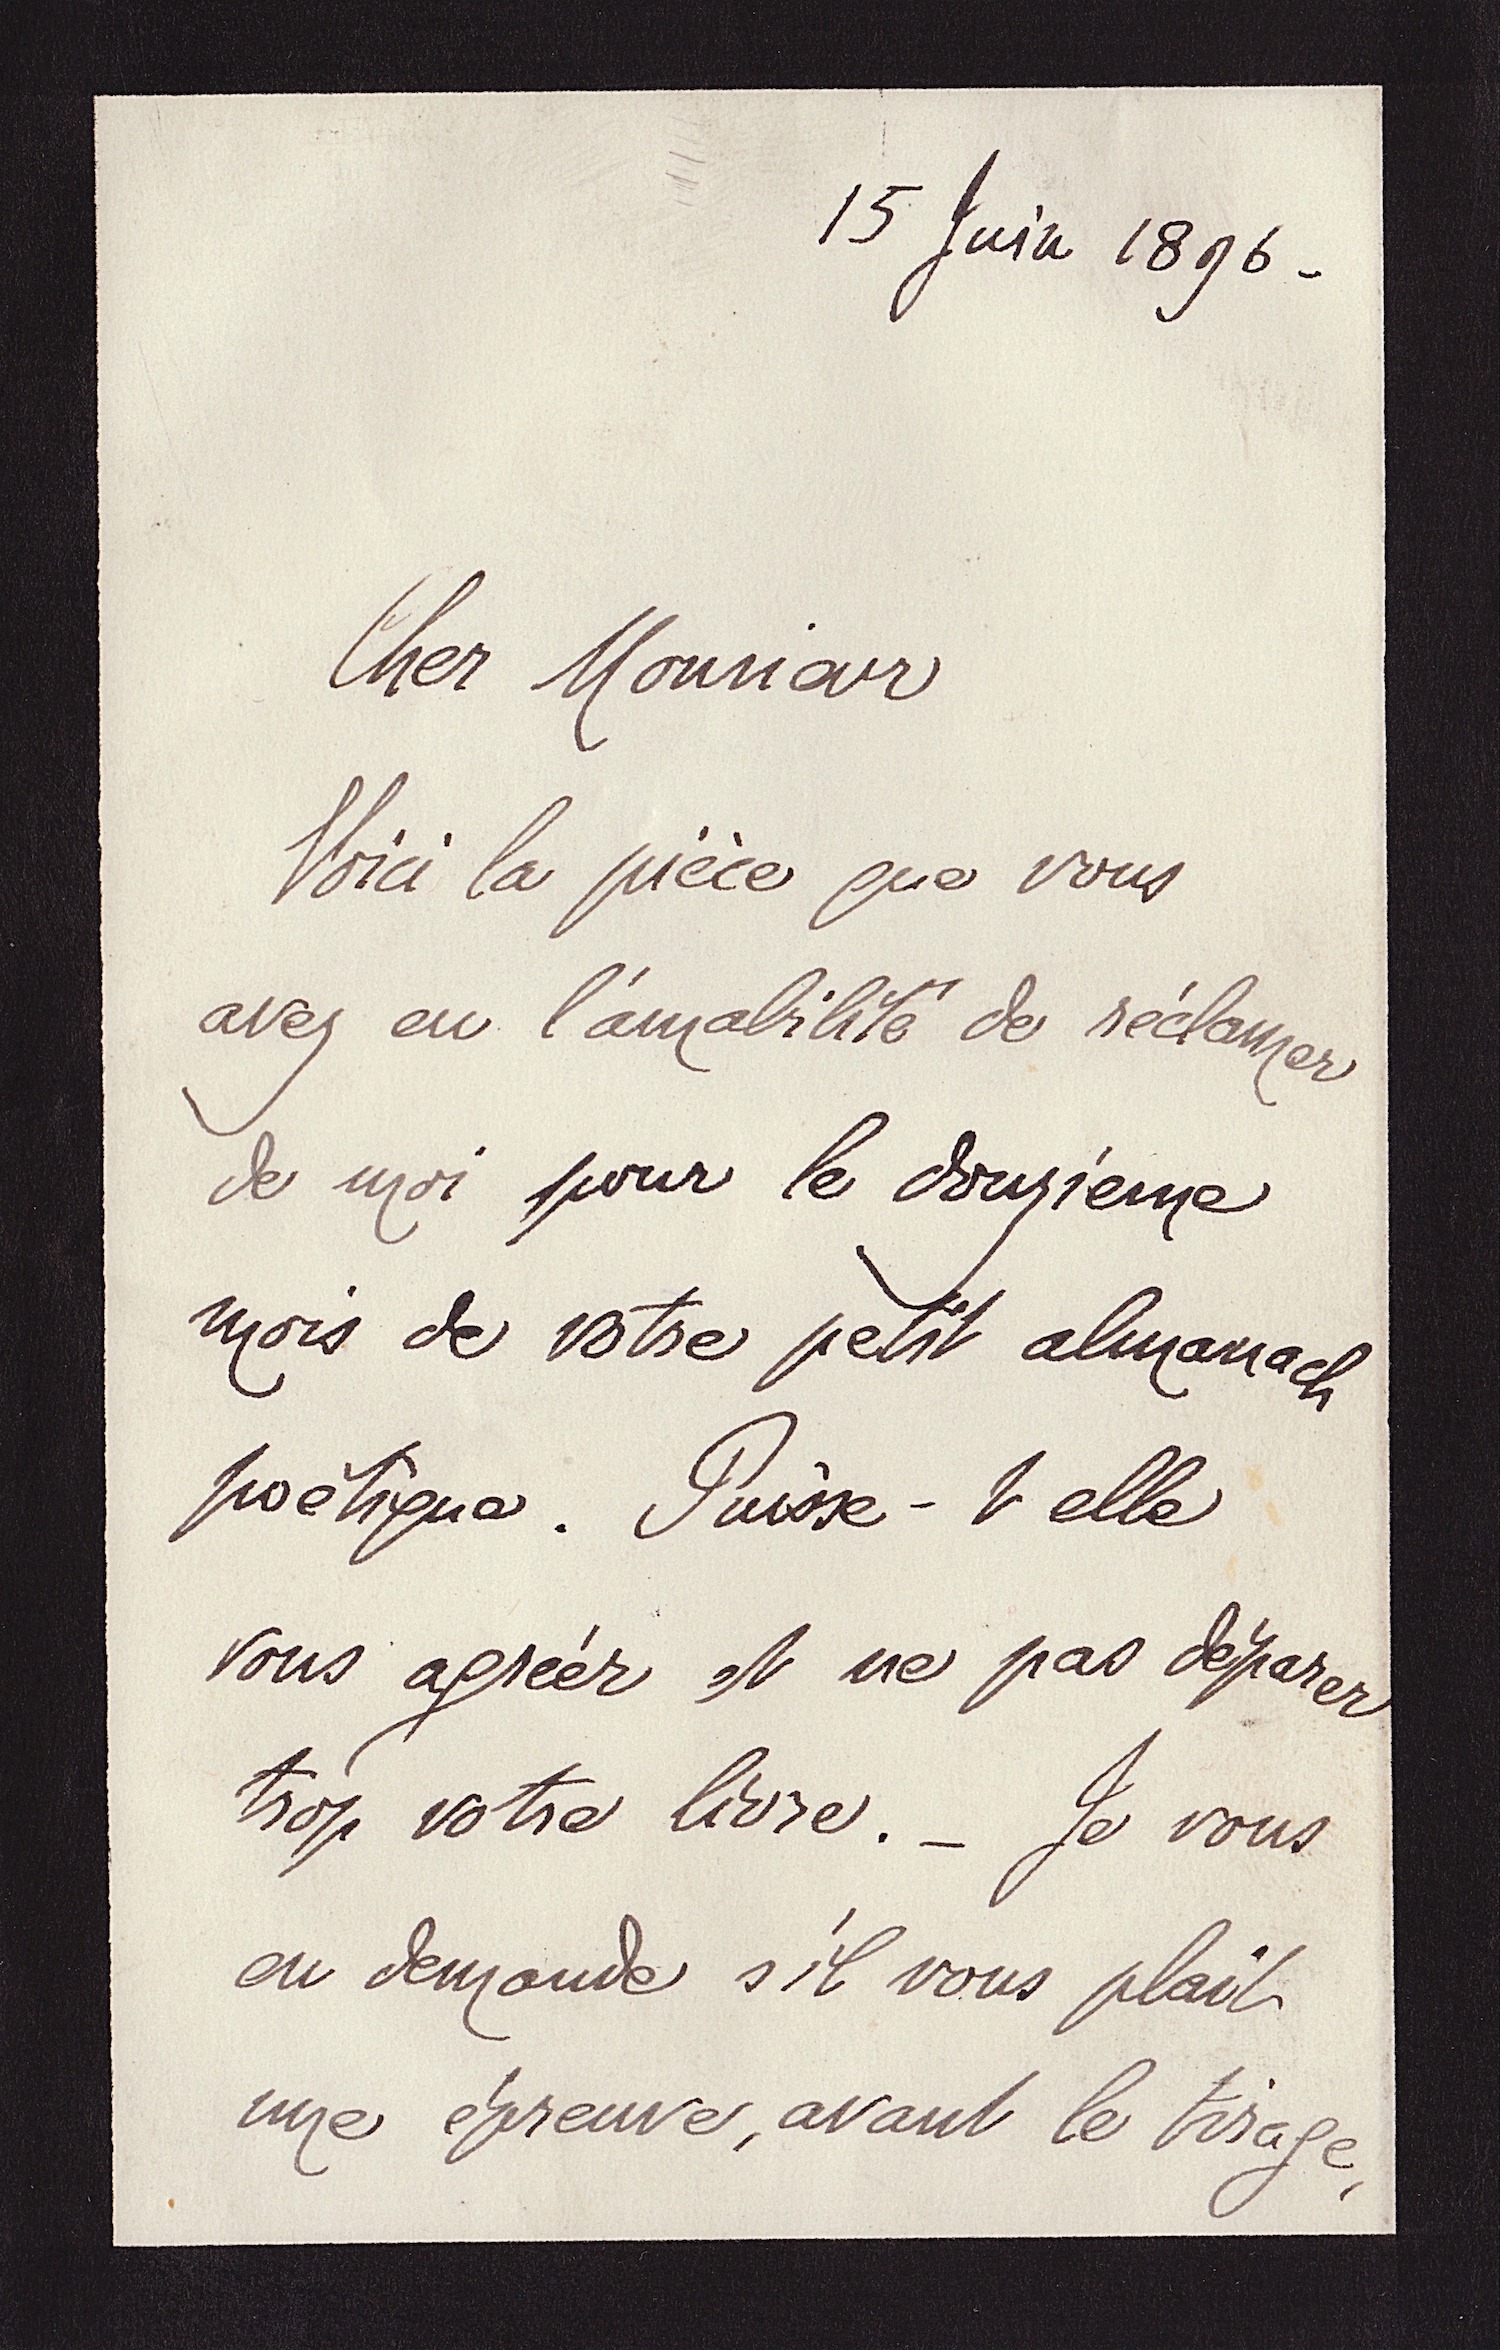 15 Juin 1896 -
Cher Monsieur
Voici la pièce que vous
avez eu l'amabilité de réclamer
de moi pour le douzieme
mois de votre petit almanach
poètique. Puisse-t elle
vous agréér et ne pas déparer
trop votre livre. _ Je vous
en demande s'il vous plait
une épreuve, avant le tirage,